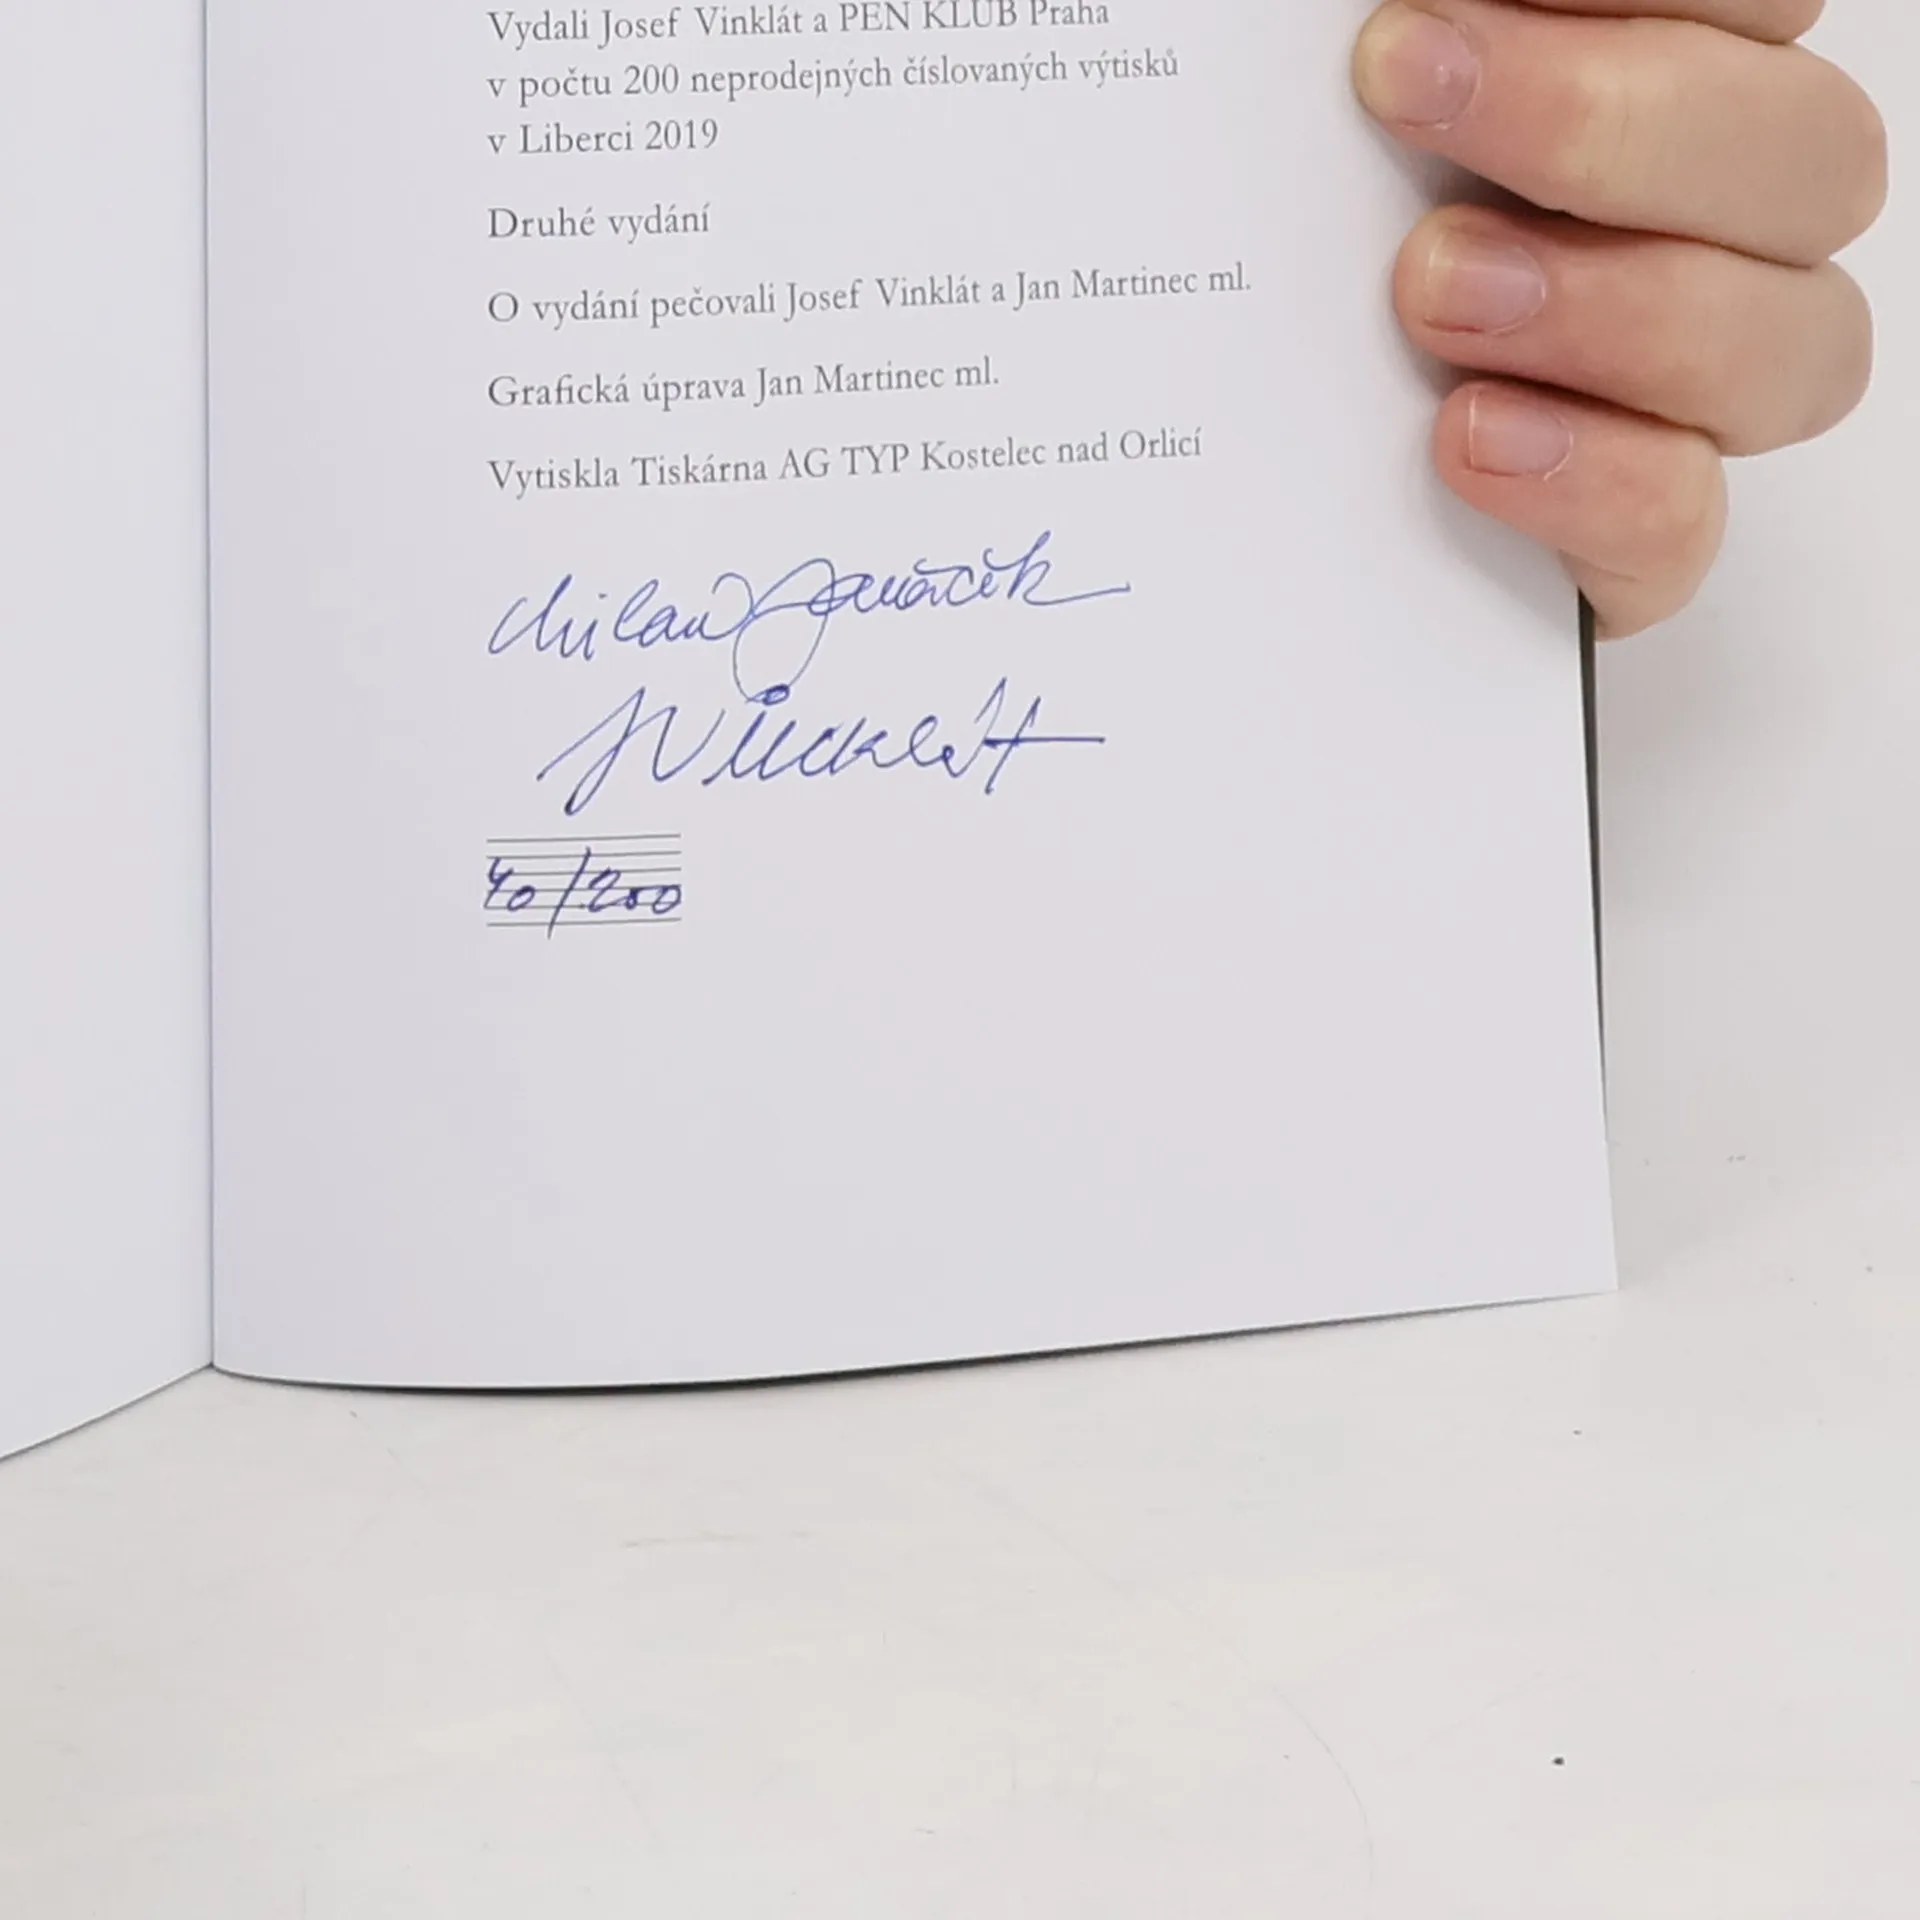 Vydali Josef Vinklát a PEN KLUB Praha
v počtu 200 neprodejných číslovaných výtisků
v Liberci 2019
Druhé vydání
O vydání pečovali Josef Vinklát a Jan Martinec ml.
Grafická úprava Jan Martinec ml.
Vytiskla Tiskárna AG TYP Kostelec nad Orlicí
Milan Janáček
JVinklát
40/200